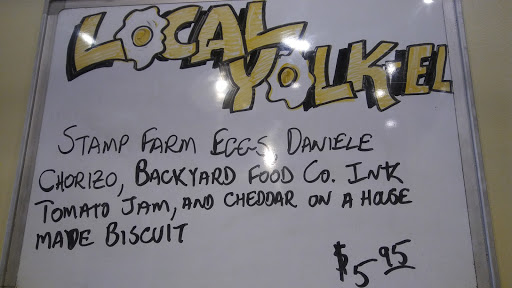 LOCAL
YOLKEL
STAMP FARM EGGS, DANIELE
CHORIZO, BACKYARD FOOD CO. INK
TOMATO JAM, AND CHEDDAR ON A HOUSE
MADE BISCUIT
$5.95